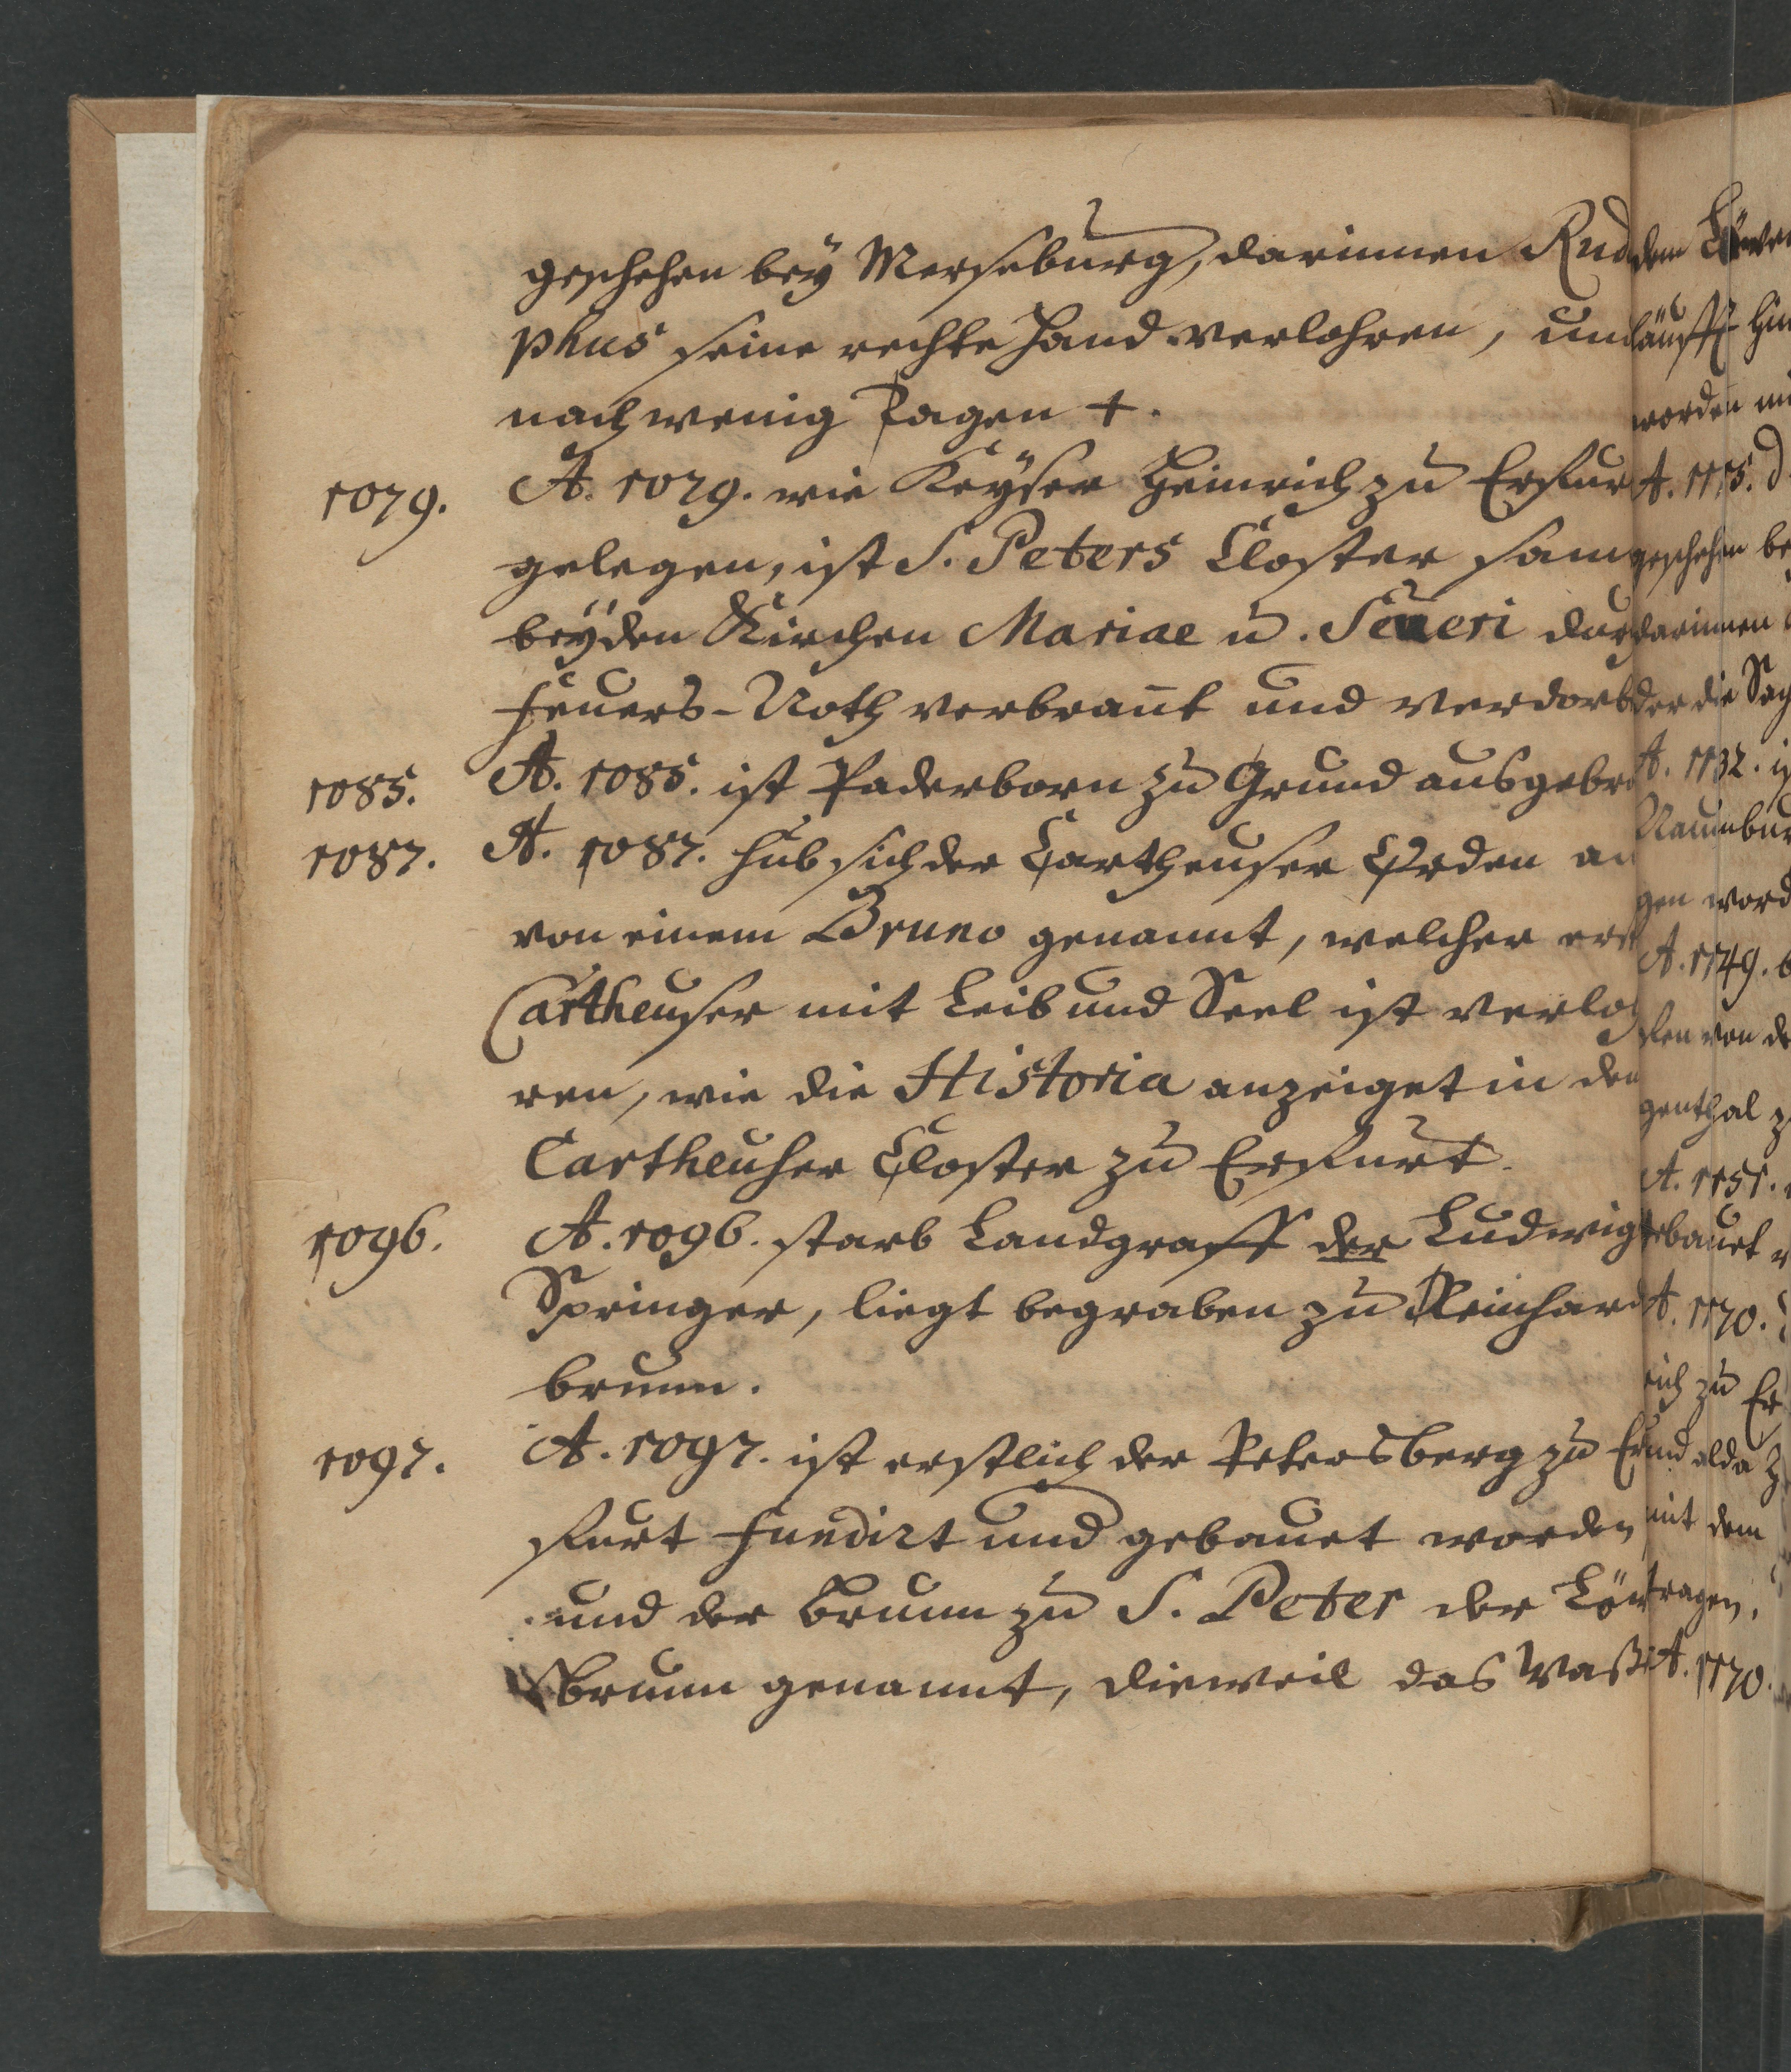 geschehen bey Merseburg, darinnen Rudol
phus seine rechte Hand verlohren, und
nach wenig Tagen +.
1079. A. 1079. wie Keyser Heinrich zu Erfur
gelegen, ist S. Peters Closter sam
beyden Kirchen Mariae u. Seueri dur
Feuers-Noth verbrañt und verdorb
1085. A. 1085. ist Paderborn zu Grund ausgebr
1087. A. 1087. hub sich der Cartheuser Orden an
von einem Bruno genannt, welcher erst
Cartheuser mit Leib und Seel ist verloh
ren, wie die Historia anzeiget in den
Cartheuser Closter zu Erfurt.
1096. A. 1096. starb Landgraff der Ludwig
Springer, liegt begraben zu Reinhard
brunn.
1097. A. 1097. ist erstlich der Petersberg zu Er
furt fundirt und gebauet worden
und der Brunn zu S. Peter der Löw
brunn genannt, dieweil das Waß
dem Löwe
läufft hin
worden
A. 1115. d
geschehen be
darinnen
der die Sach
A. 1132. i
Naumbur
gen word
A. 1149.
fen von de
genthal z
A. 1151.
gebauet
A. 1170.
rich zu Er
und alda z
mit dem
tragen.
A. 1170.